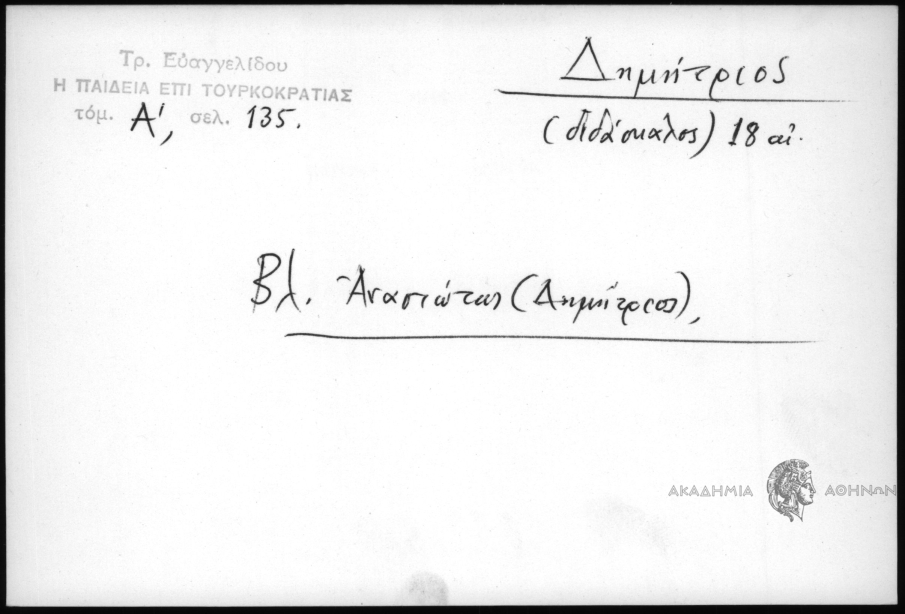 Τρ. Εὐαγγελίδου
Η ΠΑΙΔΕΙΑ ΕΠΙ ΤΟΥΡΚΟΚΡΑΤΙΑΣ
τόμ. Α', σελ. 135.
Δημήτριος
(διδάσκαλος) 18 αἰ.
Βλ. Ἀναστώτας (Δημήτριος),
ΑΚΑΔΗΜΙΑ ΑΘΗΝΩΝ